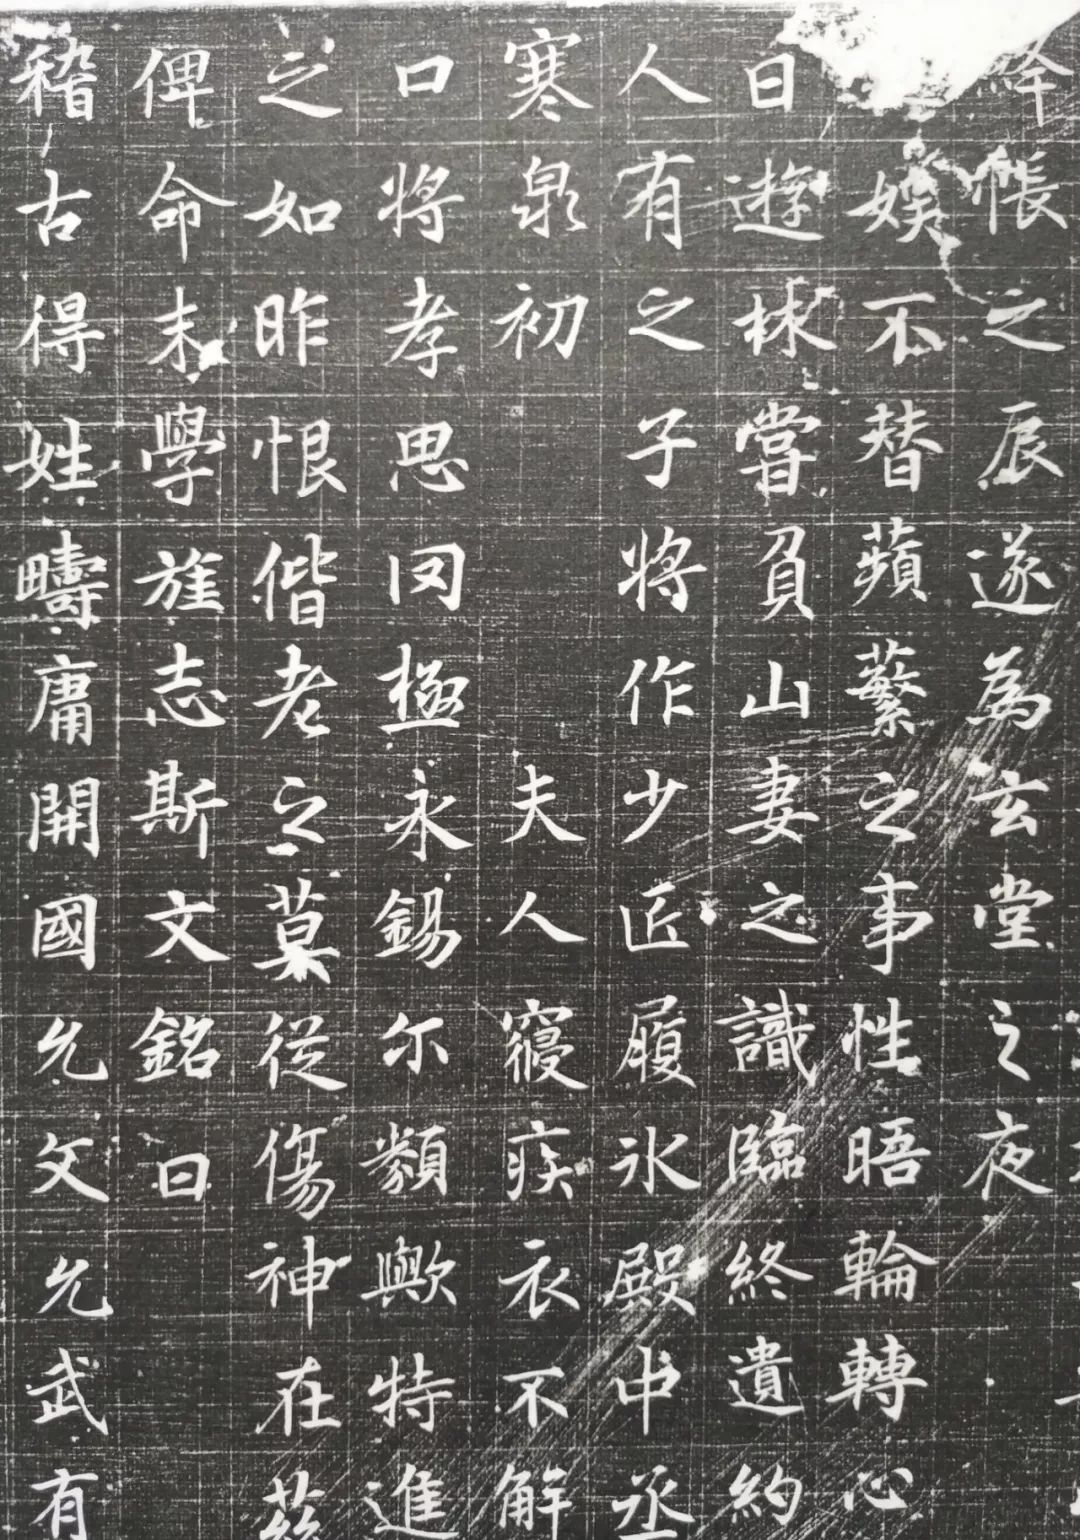 絳帳之辰遂為玄堂之夜
娛不替蘋蘩之事性晤輪轉心
日遊楙嘗負山妻之識臨終遺約
人有之子將作少匠履氷殿中丞
寒泉初夫人寑疾衣不解
口將孝思罔極永錫尒類歟特進
之如昨恨偕老之莫從傷神在茲
俾命末學旌志斯文銘曰
稽古得姓疇庸開國允文允武有